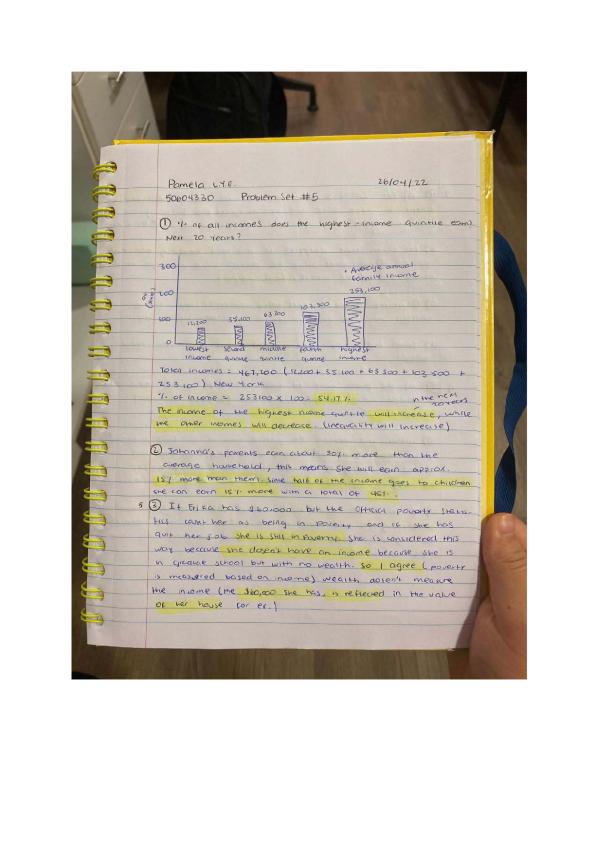 Pamela L.Y.E. 26/04/22
50604330 Problem Set #5
① % of all incomes does the highest-income quintile earn?
Next 20 years?
300
200
100
0
• Average annual
family income
12,100 55,100 63,300 103,500 253,100
lowest second middle fourth highest
income quintile quintile quintile income
Total incomes = 467,200 (12,100 + 55 100 + 63 300 + 103 500 +
253 100) New York
% of income = 253100 x 100 = 54.17%
in the next
20 years
The income of the highest income quintile will increase, while
the other incomes will decrease. (inequality will increase)
② Johanna's parents earn about 30% more than the
average household, this means she will earn approx.
15% more than them. Since half of the income goes to children
she can earn 15% more with a total of 45%.
5 ③ If Erika has $60,000 but the official poverty statis-
tics count her as being in poverty and if she has
quit her job she is still in poverty. She is considered this
way because she doesn't have an income because she is
in graduate school but with no wealth. So I agree (poverty
is measured based on income) wealth doesn't measure
the income (the $60,000 she has, is reflected in the value
of her house for ex.)